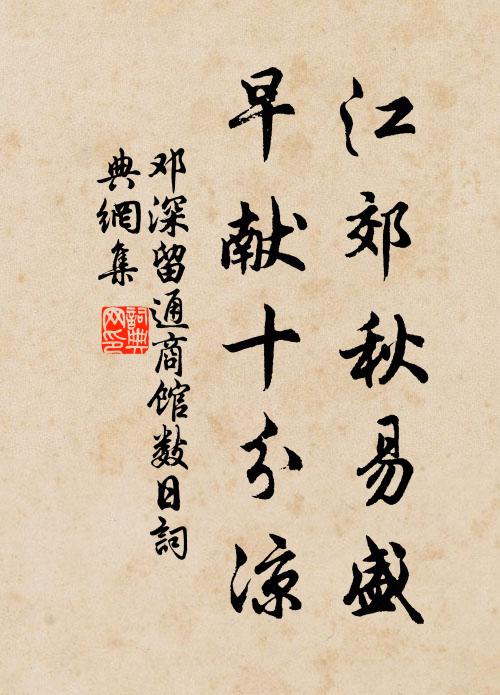 江郊秋易盛
早献十分凉
邓深留通商馆数日詞
典網集
詞典网印